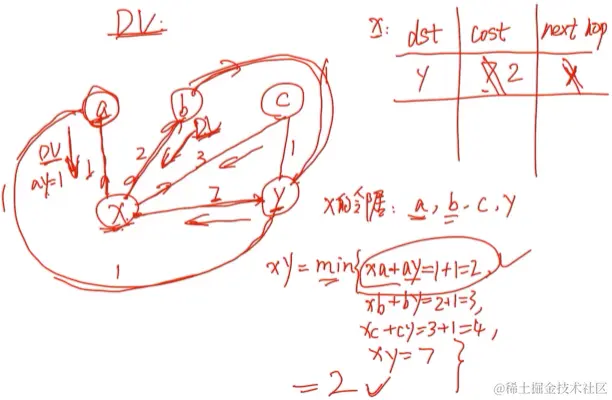 DV:
x: dst cost next hop
y 7 2 y
a
b
c
x
y
DV
ay=1
1
2
DV
3
7
1
1
1
1
x的邻居: a, b、c, y
xy = min{xa+ay=1+1=2,
xb+by=2+1=3,
xc+cy=3+1=4,
xy=7 }
= 2
@稀土掘金技术社区